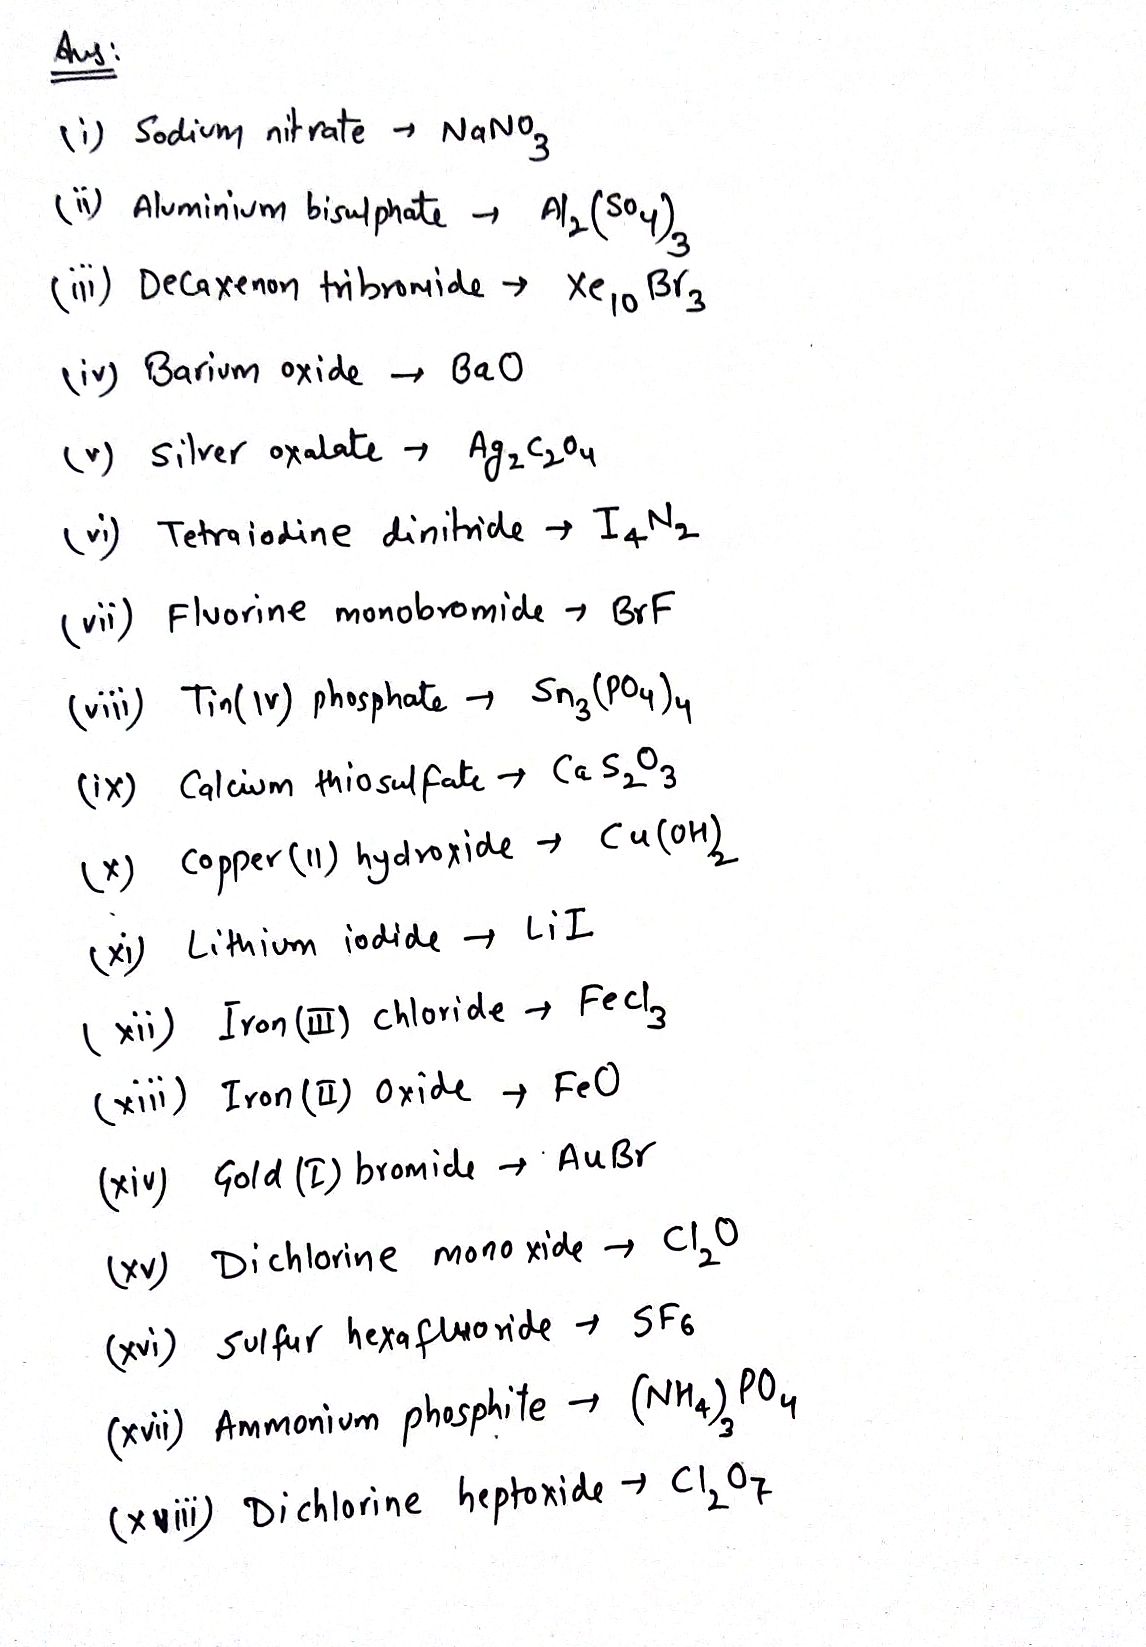 Ans:
(i) Sodium nitrate → NaNO₃
(ii) Aluminium bisulphate → Al₂(SO₄)₃
(iii) Decaxenon tribromide → Xe₁₀Br₃
(iv) Barium oxide → BaO
(v) Silver oxalate → Ag₂C₂O₄
(vi) Tetraiodine dinitride → I₄N₂
(vii) Fluorine monobromide → BrF
(viii) Tin(IV) phosphate → Sn₃(PO₄)₄
(ix) Calcium thiosulfate → CaS₂O₃
(x) Copper(II) hydroxide → Cu(OH)₂
(xi) Lithium iodide → LiI
(xii) Iron(III) chloride → FeCl₃
(xiii) Iron(II) Oxide → FeO
(xiv) Gold(I) bromide → AuBr
(xv) Dichlorine monoxide → Cl₂O
(xvi) Sulfur hexafluoride → SF₆
(xvii) Ammonium phosphite → (NH₄)₃PO₄
(xviii) Dichlorine heptoxide → Cl₂O₇